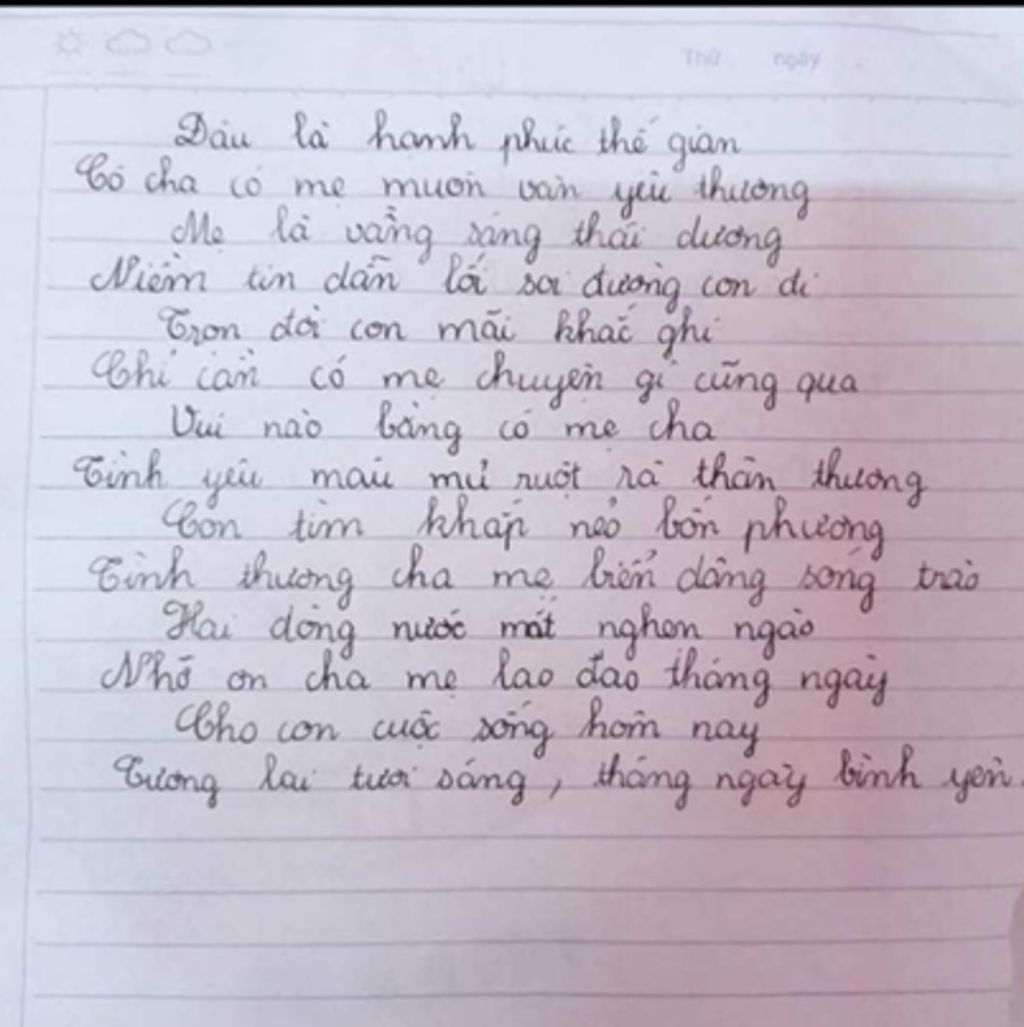 Thứ ngày
Đâu là hạnh phúc thế gian
Có cha có mẹ muôn vàn yêu thương
Mẹ là vầng sáng thái dương
Niềm tin dẫn lối soi đường con đi
Trọn đời con mãi khắc ghi
Chỉ cần có mẹ chuyện gì cũng qua
Vui nào bằng có mẹ cha
Tình yêu máu mủ ruột rà thân thương
Con tìm khắp nẻo bốn phương
Tình thương cha mẹ biển dâng sóng trào
Hai dòng nước mắt nghẹn ngào
Nhớ ơn cha mẹ lao đao tháng ngày
Cho con cuộc sống hôm nay
Tương lai tươi sáng, tháng ngày bình yên.